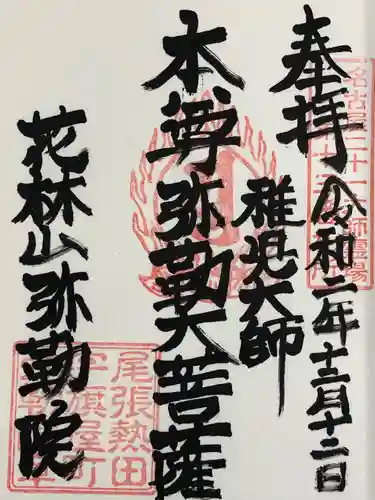 奉拝
令和二年十二月十二日
稚児大師
本尊弥勒大菩薩
花林山弥勒院
名古屋二十一大師霊場
尾張熱田
旗屋町